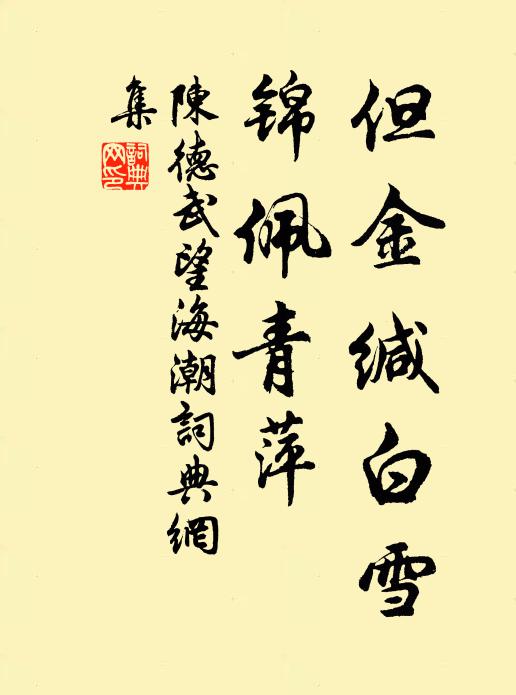 但金缄白雪
锦佩青萍
陳德武望海潮詞典網
集
詞典
网印